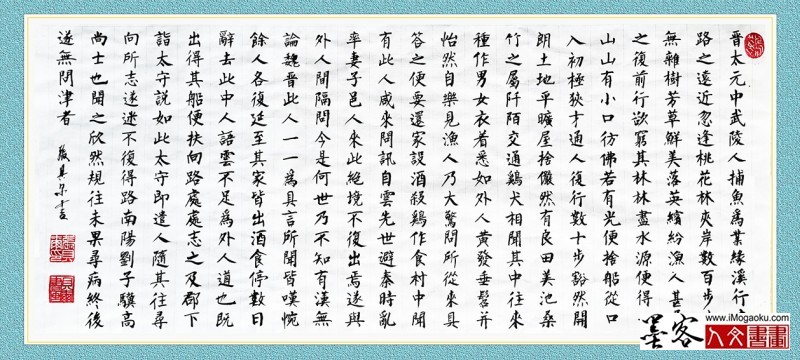 晉太元中武陵人捕魚爲業緣溪行
路之遠近忽逢桃花林夾岸數百步
無雜樹芳草鮮美落英繽紛漁人甚
之復前行欲窮其林林盡水源便得
山山有小口彷佛若有光便捨船從口
入初極狹才通人復行數十步豁然開
朗土地平曠屋捨儼然有良田美池桑
竹之屬阡陌交通鷄犬相聞其中往來
種作男女衣着悉如外人黃發垂髫并
怡然自樂見漁人乃大驚問所從來具
答之便要還家設酒殺鷄作食村中聞
有此人咸來問訊自雲先世避秦時亂
率妻子邑人來此絕境不復出焉遂與
外人間隔問今是何世乃不知有漢無
論魏晉此人一一爲具言所聞皆嘆惋
餘人各復延至其家皆出酒食停數日
辭去此中人語雲不足爲外人道也既
出得其船便扶向路處處志之及郡下
詣太守説如此太守即遣人隨其往尋
向所志遂迷不復得路南陽劉子驥高
尚士也聞之欣然規往未果尋病終後
遂無問津者
www.iMogaoku.com
墨客人文書畫